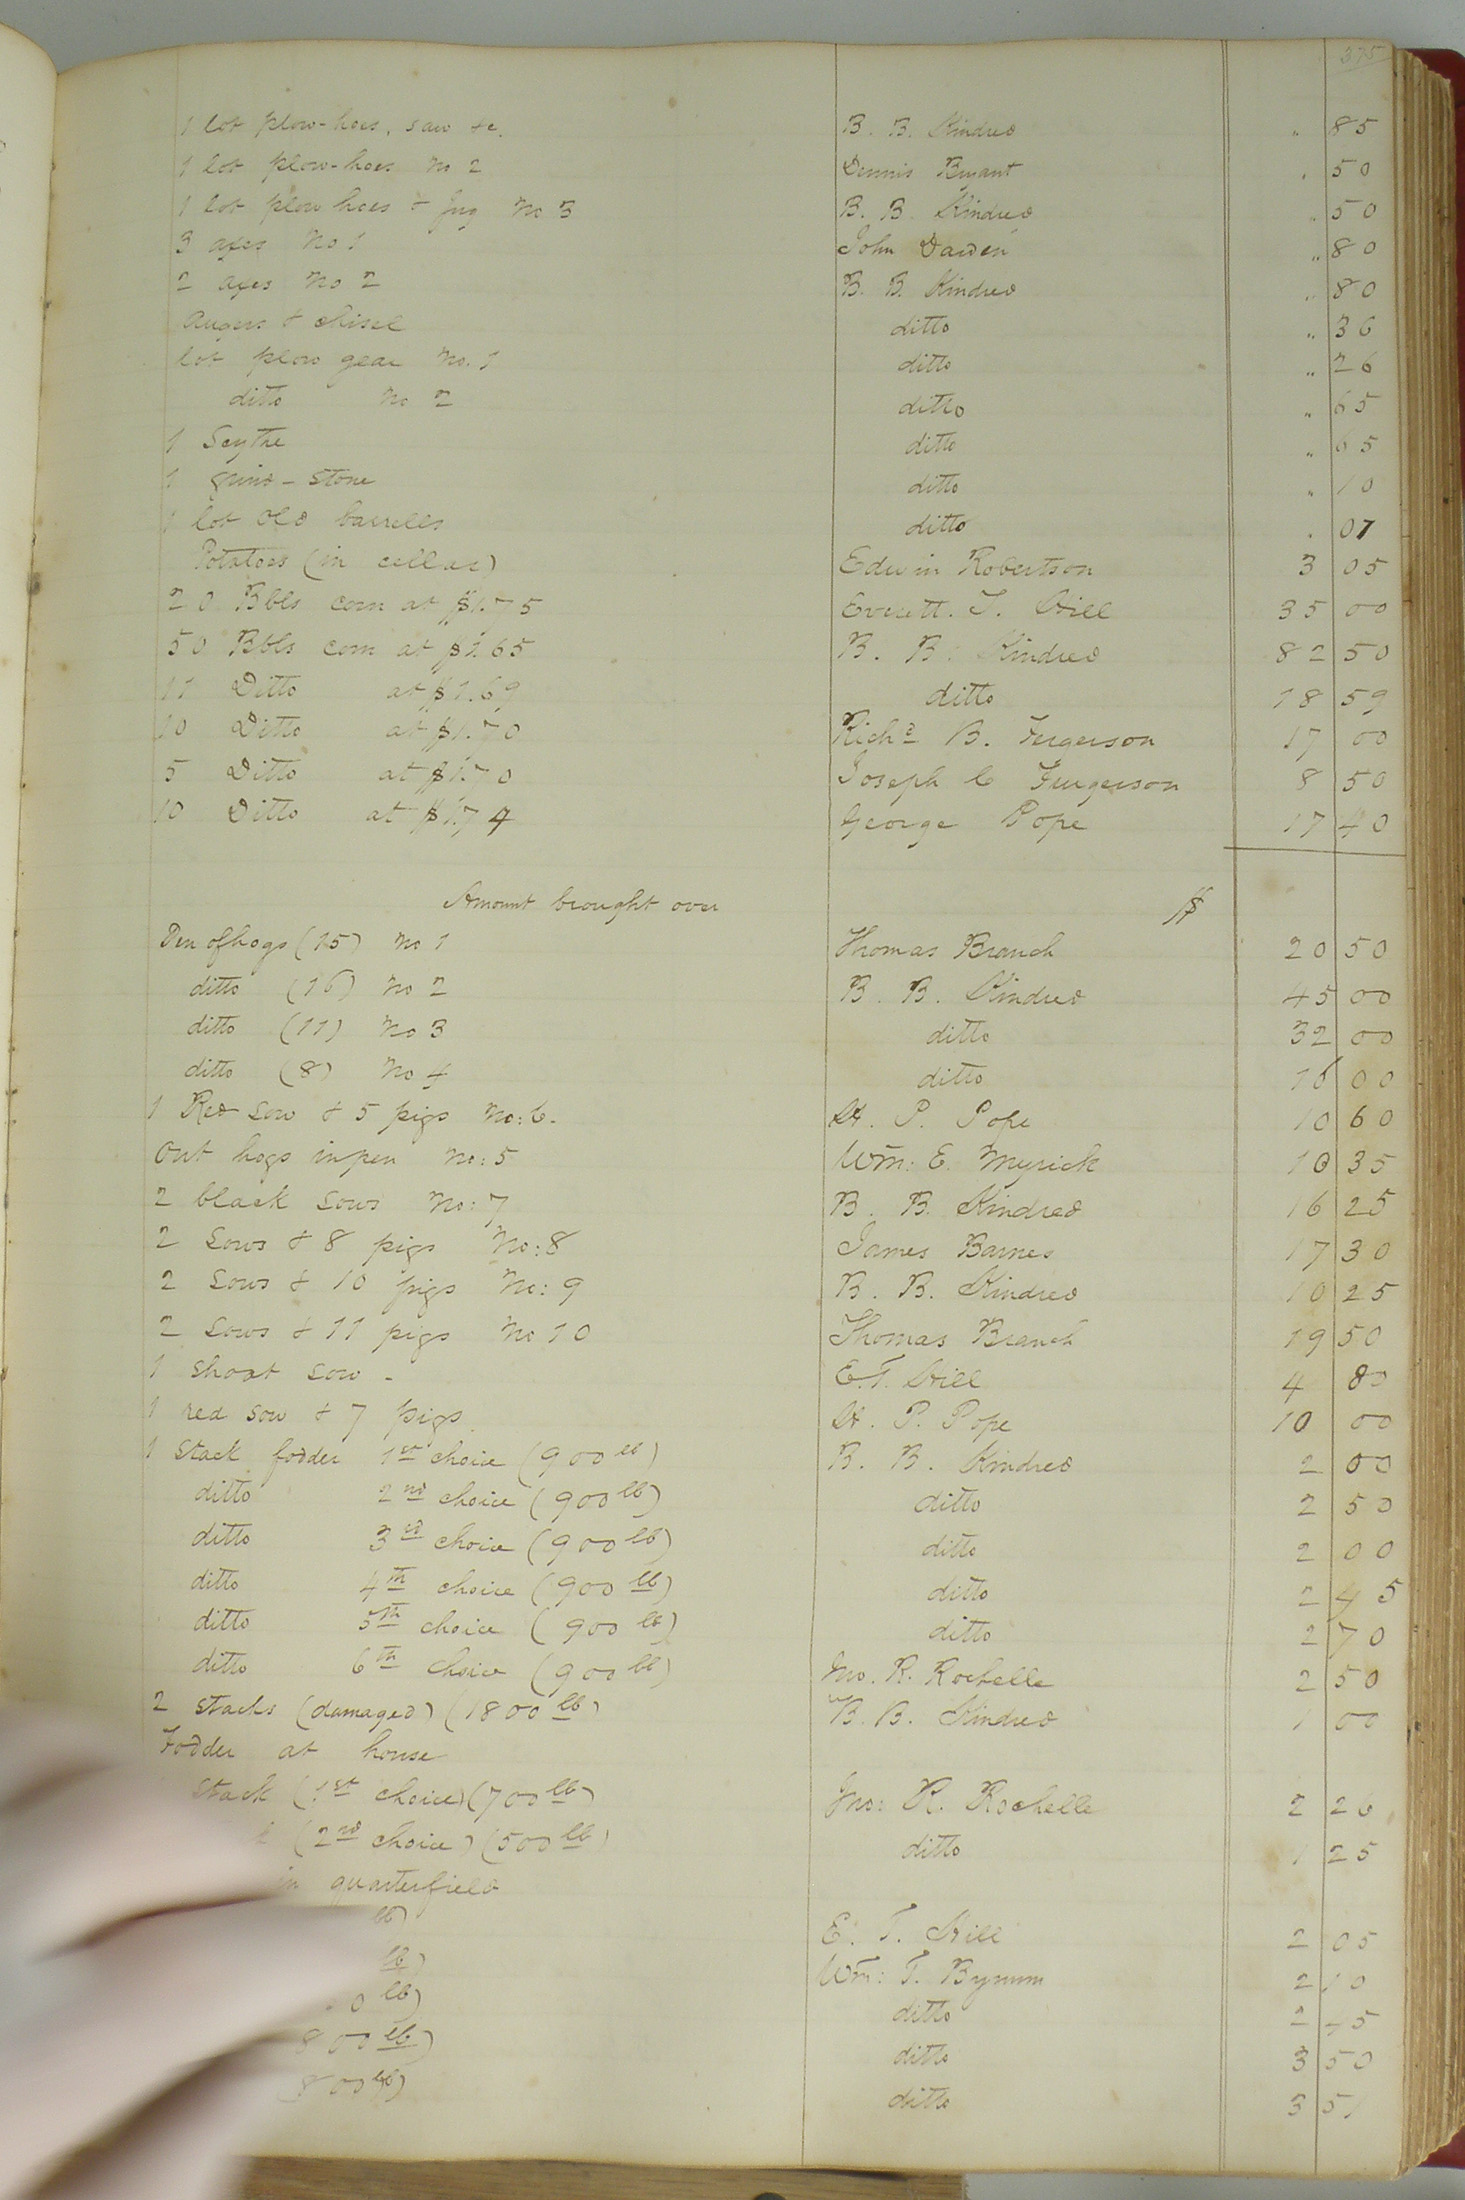 375
1 lot plow-hoes, saw &c. B. B. Kindred " 85
1 lot plow-hoes No 2 Dennis Bryant " 50
1 lot plow hoes & Jug No 3 B. B. Kindred " 50
3 axes No 1 John Darden " 80
2 axes No 2 B. B. Kindred " 80
Augers & chisel ditto " 36
lot plow gear No. 1 ditto " 26
ditto No 2 ditto " 65
1 Scythe ditto " 65
1 grind-stone ditto " 10
1 lot old barrells ditto " 07
Potatoes (in cellar) Edwin Robertson 3 05
20 Bbls corn at $1.75 Everett. T. Hill 35 00
50 Bbls corn at $1.65 B. B. Kindred 82 50
11 Ditto at $1.69 ditto 18 59
10 Ditto at $1.70 Richd B. Fergerson 17 00
5 Ditto at $1.70 Joseph C Furgerson 8 50
10 Ditto at $1.74 George Pope 17 40
Amount brought over $
Pen of hogs (15) No 1 Thomas Branch 20 50
ditto (16) No 2 B. B. Kindred 45 00
ditto (11) No 3 ditto 32 00
ditto (8) No 4 ditto 16 00
1 Red Sow & 5 pigs No: 6. H. P. Pope 10 60
Out hogs in pen No: 5 Wm: E. Myrick 10 35
2 black Sows No: 7 B. B. Kindred 16 25
2 Sows & 8 pigs No: 8 James Barnes 17 30
2 Sows & 10 pigs No: 9 B. B. Kindred 10 25
2 Sows & 11 pigs No 10 Thomas Branch 19 50
1 Shoat Sow - E. T. Hill 4 80
1 red sow & 7 pigs H. P. Pope 10 00
1 Stack fodder 1st choice (900 lb) B. B. Kindred 2 00
ditto 2nd choice (900 lb) ditto 2 50
ditto 3rd choice (900 lb) ditto 2 00
ditto 4th choice (900 lb) ditto 2 45
ditto 5th choice (900 lb) ditto 2 70
ditto 6th choice (900 lb) Jno. R. Rochelle 2 50
2 Stacks (damaged) (1800 lb) B. B. Kindred 1 00
Fodder at house
Stack (1st choice) (700 lb) Jno: R. Rochelle 2 26
(2nd choice) (500 lb) ditto 1 25
in quarterfield
lb) E. T. Hill 2 05
lb) Wm: T. Bynum 2 10
0 lb) ditto 2 45
800 lb) ditto 3 50
800 lb) ditto 3 51